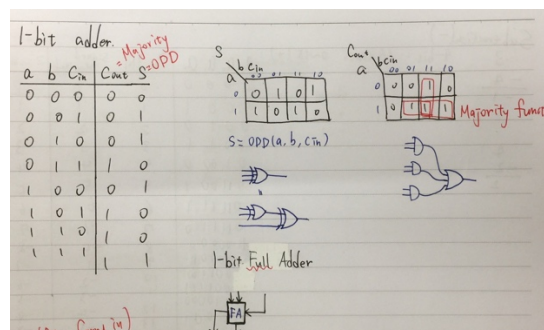 1-bit adder.
= Majority
= ODD
a b Cin Cout S
0 0 0 0 0
0 0 1 0 1
0 1 0 0 1
0 1 1 1 0
1 0 0 0 1
1 0 1 1 0
1 1 0 1 0
1 1 1 1 1
S
b Cin
a 00 01 11 10
0 0 1 0 1
1 1 0 1 0
S = ODD(a, b, cin)
Cout
b cin
a 00 01 11 10
0 0 0 1 0
1 0 1 1 1
Majority funct
1-bit Full Adder
FA